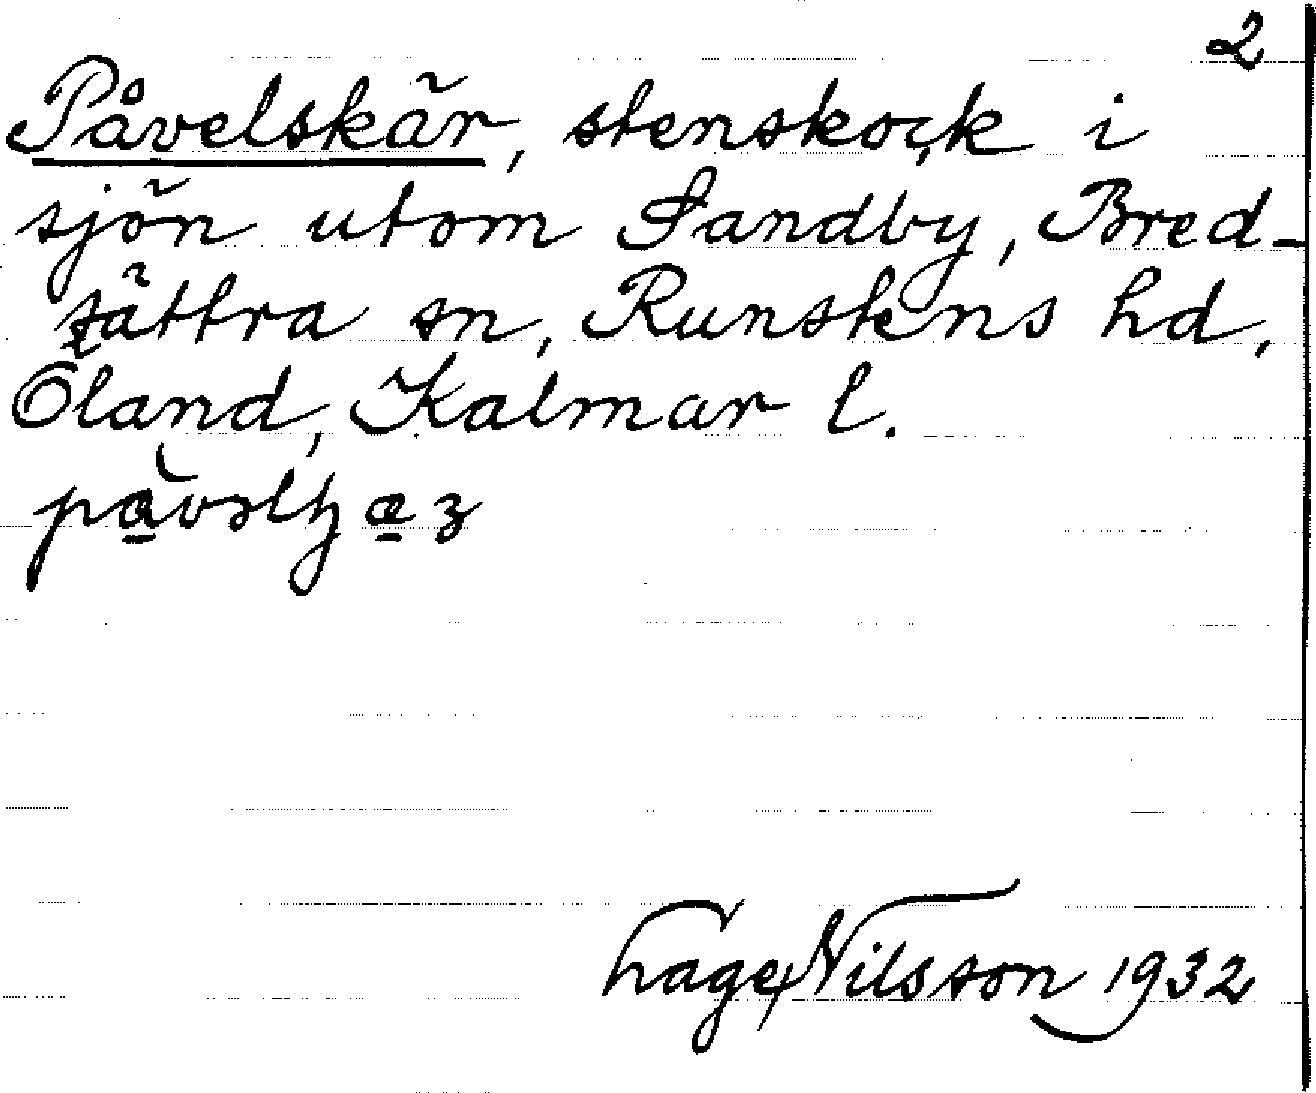 2
Påvelskär, stenskock i
sjön utom Sandby, Bred-
sättra sn, Runstens hd,
Öland, Kalmar l.
Hage Nilsson 1932